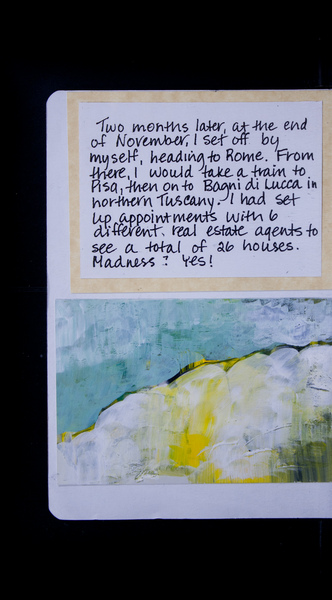 Two months later, at the end
of November, I set off by
myself, heading to Rome. From
there, I would take a train to
Pisa, then on to Bagni di Lucca in
northern Tuscany. I had set
up appointments with 6
different real estate agents to
see a total of 26 houses.
Madness? Yes!